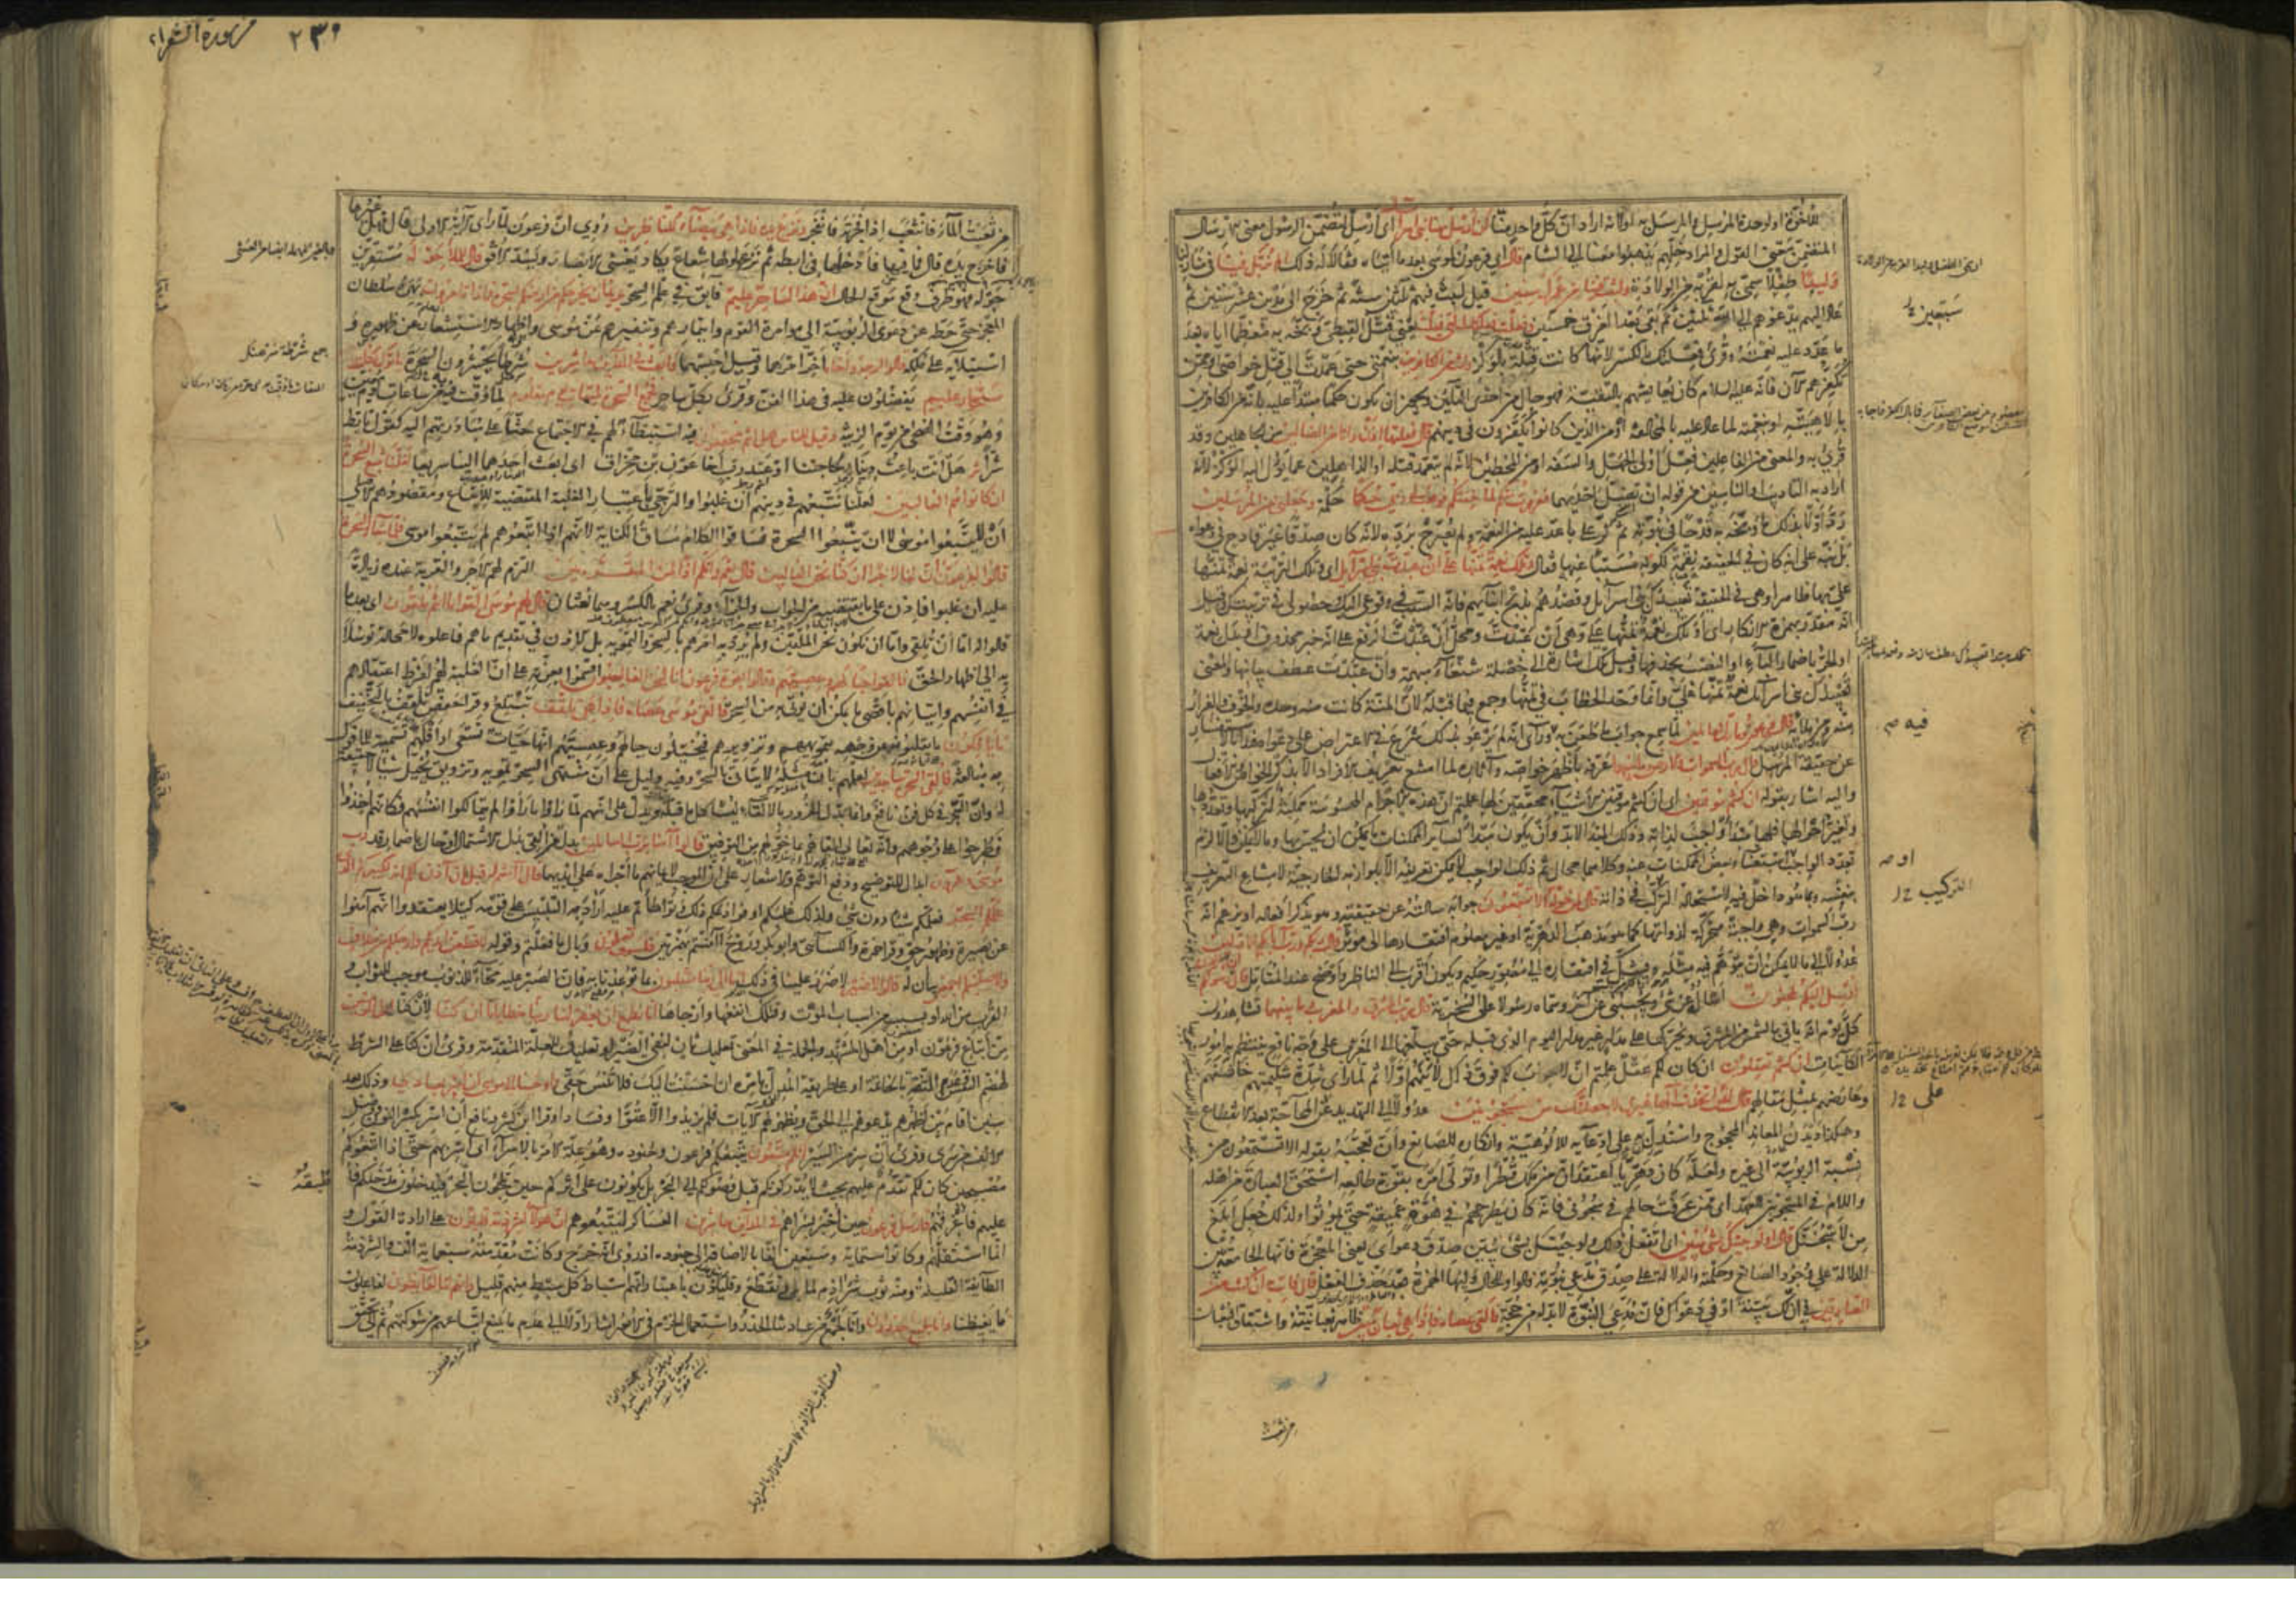 للأخوة او لوحدة المرسل والمرسل به او لانه اراد ان كل واحد منا ان ارسل معنا بنى اسرائيل اى ارسل لتضمن الرسول معنى الارسال
المتضمن معنى القول والمراد خلهم يذهبوا معنا الى الشام قال اى فرعون لموسى بعد ما اتياه فقالا له ذلك الم نربك فينا فى منازلنا
وليدا طفلا سمى به لقربه من الولادة ولبثت فينا من عمرك سنين قيل لبث فيهم ثلثين سنة ثم خرج الى مدين عشر سنين ثم
عاد اليهم يدعوهم الى الله ثلثين ثم بقى بعد الغرق خمسين وفعلت فعلتك التى فعلت يعنى قتل القبطى وبخه به معظما اياه بعد
ما عدد عليه نعمته وقرئ فعلتك بالكسر لانها كانت قتلة بالوكز وانت من الكافرين بنعمتى حتى عمدت الى قتل خواصى او ممن
تكفرهم الآن فانه عليه السلام كان يعايشهم بالتقية فهو حال من احدى التائين ويجوز ان يكون حكما مبتدأ عليه بانه من الكافرين
بالاهيته او بنعمته لما عاد عليه بالمخالفة او من الذين كانوا يكفرون فى دينهم قال فعلتها اذا وانا من الضالين من الجاهلين وقد
قرئ به والمعنى من الفاعلين فعل اولى الجهل والسفه او من المخطئين لانه لم يتعمد قتله او الذاهلين عما يؤول اليه الوكز لانه
اراد به التأديب او الناسين من قوله ان تضل احديهما ففررت منكم لما خفتكم فوهب لى ربى حكما حكمة وجعلنى من المرسلين
رد اولا بذلك ما وبخه به قدحا فى نبوته ثم كر على ما عد عليه من النعمة ولم يصرح برده لانه كان صدقا غير قادح فى دعواه
بل نبه على انه كان فى الحقيقة نقمة لكونه مسببا عنها فقال وتلك نعمة تمنها على ان عبدت بنى اسرائيل اى وتلك التربية نعمة تمنها
على بها ظاهرا وهى فى الحقيقة تعبيدك بنى اسرائيل وقصدهم بذبح ابنائهم فانه السبب فى وقوعى اليك وحصولى فى تربيتك وقيل
انه مقدر بهمزة الانكار اى او تلك نعمة تمنها على وهى ان عبدت ومحل ان عبدت الرفع على انه خبر محذوف او بدل نعمة
او الجر باضمار الباء او النصب بحذفها وقيل تلك اشارة الى خصلة شنعاء مبهمة وان عبدت عطف بيانها والمعنى
تعبيدك بنى اسرائيل نعمة تمنها على وانما وحد الخطاب فى تمنها وجمع فيما قبله لان المنة كانت منه وحده والخوف والفرار
منه ومن ملائه قال فرعون وما رب العالمين لما سمع جواب ما طعن به ورأى انه لم يرعو بذلك شرع فى الاعتراض على دعواه فبدأ بالاستفسار
عن حقيقة المرسل قال رب السموات والارض وما بينهما عرفه باظهر خواصه وآثاره لما امتنع تعريف الافراد الا بذكر الخواص والافعال
واليه اشار بقوله ان كنتم موقنين اى ان كنتم موقنين الاشياء محققين لها علمتم ان هذه الاجرام المحسوسة ممكنة لتركبها وتعددها
وتغير احوالها فلها مبدأ واجب لذاته وذلك المبدأ لابد وان يكون مبدأ لسائر الممكنات ما يمكن ان يحس بها وما لا يمكن والا لزم
تعدد الواجب او استغناء بعض الممكنات عنه وكلاهما محال ثم ذلك الواجب لا يمكن تعريفه الا بلوازمه الخارجية لامتناع التعريف
بنفسه وبما هو داخل فيه لاستحالة التركب فى ذاته قال لمن حوله الا تستمعون جوابه سألته عن حقيقته وهو يذكر افعاله او يزعم انه
رب السموات وهى واجبة متحركة لذواتها كما هو مذهب الدهرية او غير معلوم افتقارها الى مؤثر قال ربكم ورب آبائكم الاولين
عدولا الى ما لا يمكن ان يتوهم فيه مثله ويشك فى افتقاره الى مصور حكيم ويكون اقرب الى الناظر واوضح عند المتأمل قال ان رسولكم الذى
ارسل اليكم لمجنون اسأله عن شئ ويجيبنى عن آخر وسماه رسولا على السخرية قال رب المشرق والمغرب وما بينهما تشاهدون
كل يوم انه يأتى بالشمس من المشرق ويحركها على مدار غير مدار اليوم الذى قبله حتى يبلغها الى المغرب على وجه نافع ينتظم به امور
الكائنات ان كنتم تعقلون ان كان لكم عقل علمتم ان لا جواب لكم فوق ذلك لاينهم اولا ثم لما رأى شدة شكيمتهم خاشنهم
وعارضهم بمثل مقالهم قال لئن اتخذت الها غيرى لاجعلنك من المسجونين عدولا الى التهديد عن المحاجة بعد الانقطاع
وهكذا ديدن المعاند المحجوج واستدل به على ادعائه الالوهية وانكاره الصانع وان تعجبه بقوله الا تستمعون من
نسبة الربوبية الى غيره ولعله كان دهريا اعتقد ان من ملك قطرا وتولى امره بقوة طالعه استحق العبادة من اهله
واللام فى المسجونين للعهد اى ممن عرفت حالهم فى سجونى فانه كان يطرحهم فى هوة عميقة حتى يموتوا ولذلك جعل ابلغ
من لاسجننك قال اولو جئتك بشئ مبين اى اتفعل ذلك ولو جئتك بشئ يبين صدق دعواى يعنى المعجزة فانها الجامعة بين
الدلالة على وجود الصانع وحكمته والدلالة على صدق مدعى نبوته فالواو للحال وليها الهمزة بعد حذف الفعل قال فأت به ان كنت من
الصادقين فى ان لك بينة او فى دعواك فان مدعى النبوة لابد له من حجة فالقى عصاه فاذا هى ثعبان مبين ظاهر ثعبانيته واشتقاق الثعبان
من ثعبت
من سورة الشعراء ٢٣٩
من ثعبت الماء فانثعب اذا فجرته فانفجر ونزع يده فاذا هى بيضاء للناظرين روى ان فرعون لما رأى الآية الاولى قال فهل غيرها
فاخرج يده قال فما فيها فادخلها فى ابطه ثم نزعها ولها شعاع يكاد يغشى الابصار ويسد الافق قال للملأ حوله مستقرين
حوله فهو ظرف وقع موقع الحال ان هذا لساحر عليم فائق فى علم السحر يريد ان يخرجكم من ارضكم بسحره فماذا تأمرون بهره سلطان
المعجزة حتى حطه عن دعوى الربوبية الى مؤامرة القوم وائتمارهم وتنفيرهم عن موسى واظهار الاستشعار عن ظهوره و
استيلائه على ملكه قالوا ارجه واخاه اخر امرهما وقيل احبسهما وابعث فى المدائن حاشرين شرطا يحشرون السحرة يأتوك بكل
سحار عليم يفضلون عليه فى هذا الفن وقرئ بكل ساحر فجمع السحرة لميقات يوم معلوم لما وقت به من ساعات يوم معين
وهو وقت الضحى من يوم الزينة وقيل للناس هل انتم مجتمعون فيه استبطاء لهم فى الاجتماع حثا على مبادرتهم اليه كقول تأبط
شرا هل انت باعث دينار لحاجتنا او عبد رب اخا عون بن مخراق اى ابعث احدهما الينا سريعا لعلنا نتبع السحرة
ان كانوا هم الغالبين لعلنا نتبعهم فى دينهم ان غلبوا والترجى باعتبار الغلبة المقتضية للاتباع ومقصودهم الاصلى
ان لا يتبعوا موسى لا ان يتبعوا السحرة فساقوا الكلام مساق الكناية لانهم اذا اتبعوهم لم يتبعوا موسى فلما جاء السحرة
قالوا لفرعون ائن لنا لاجرا ان كنا نحن الغالبين قال نعم وانكم اذا لمن المقربين التزم لهم الاجر والقربة عنده زيادة
عليه ان غلبوا فاذن على ما يقتضيه من الجواب والجزاء وقرئ نعم بالكسر وهما لغتان قال لهم موسى القوا ما انتم ملقون اى بعد ما
قالوا له اما ان تلقى واما ان نكون نحن الملقين ولم يرد به امرهم بالسحر والتمويه بل الاذن فى تقديم ما هم فاعلوه لا محالة توسلا
به الى اظهار الحق فالقوا حبالهم وعصيهم وقالوا بعزة فرعون انا لنحن الغالبون اقسموا بعزته على ان الغلبة لهم لفرط اعتقادهم
فى انفسهم واتيانهم باقصى ما يمكن ان يؤتى به من السحر فالقى موسى عصاه فاذا هى تلقف تبتلع وقرأ حفص تلقف بالتخفيف
ما يأفكون ما يقلبونه عن وجهه بتمويههم وتزويرهم فيخيلون حبالهم وعصيهم انها حيات تسعى او افكهم تسمية للمأفوك
به مبالغة فالقى السحرة ساجدين لعلمهم بان مثله لا يتأتى بالسحر وفيه دليل على ان منتهى السحر تمويه وتزويق يخيل شيئا لا حقيقة
له وان التبحر فى كل فن نافع وانما بدل الخرور بالالقاء ليشاكل ما قبله ويدل على انهم لما رأوا ما رأوا لم يتمالكوا انفسهم فكأنهم اخذوا
فطرحوا على وجوههم وانه تعالى القاهم بما خولهم من التوفيق قالوا آمنا برب العالمين بدل من القى بدل الاشتمال او حال باضمار قد رب
موسى وهرون ابدال للتوضيح ودفع التوهم والاشعار على ان الموجب لايمانهم ما اجراه على ايديهما قال آمنتم له قبل ان آذن لكم انه لكبيركم الذى
علمكم السحر فعلمكم شيئا دون شئ ولذلك غلبكم او فواعدكم ذلك وتواطأتم عليه اراد به التلبيس على قومه كيلا يعتقدوا انهم آمنوا
عن بصيرة وظهور حق وقرأ حمزة والكسائى وابو بكر وروح أآمنتم بهمزتين فلسوف تعلمون وبال ما فعلتم وقوله لاقطعن ايديكم وارجلكم من خلاف
ولاصلبنكم اجمعين بيان له قالوا لا ضير لا ضرر علينا فى ذلك انا الى ربنا منقلبون بما توعدنا به فان الصبر عليه محاء للذنوب موجب للثواب و
القرب من الله او بسبب من اسباب الموت وقتلك انفعها وارجاها انا نطمع ان يغفر لنا ربنا خطايانا ان كنا لأن كنا اول المؤمنين
من اتباع فرعون او من اهل المشهد والجملة فى المعنى تعليل ثان لنفى الضير او تعليل للعلة المتقدمة وقرئ ان كنا على الشرط
لهضم النفس وعدم الثقة بالخاتمة او على طريقة المدل بامره ان احسنت اليك فلا تنس حقى واوحينا الى موسى ان اسر بعبادى وذلك بعد
سنين اقام بين اظهرهم يدعوهم الى الحق ويظهر لهم الآيات فلم يزيدوا الا عتوا وفسادا وقرأ ابن كثير ونافع ان اسر بكسر النون ووصل
الالف من سرى وقرئ ان سر من السير انكم متبعون يتبعكم فرعون وجنوده وهو علة الامر بالاسراء اى اسر بهم حتى اذا اتبعوكم
مصبحين كان لكم تقدم عليهم بحيث لا يدركونكم قبل وصولكم الى البحر بل يكونون على اثركم حين تلجون البحر فيدخلون مدخلكم فأطبقه
عليهم فاغرقهم فارسل فرعون حين اخبر بسراهم فى المدائن حاشرين العساكر ليتبعوهم ان هؤلاء لشرذمة قليلون على ارادة القول و
انما استقلهم وكانوا ستمائة وسبعين الفا بالاضافة الى جنوده اذ روى انه خرج وكانت مقدمته سبعمائة الف والشرذمة
الطائفة القليلة ومنه ثوب شراذم لما بلى وتقطع وقليلون باعتبار انهم اسباط كل سبط منهم قليل وانهم لنا لغائظون لفاعلون
ما يغيظنا وانا لجميع حذرون وانا لجمع من عادتنا الحذر واستعمال الحزم فى الامور اشار اولا الى عدم ما يمنع اتباعهم من شوكتهم ثم الى تحقق